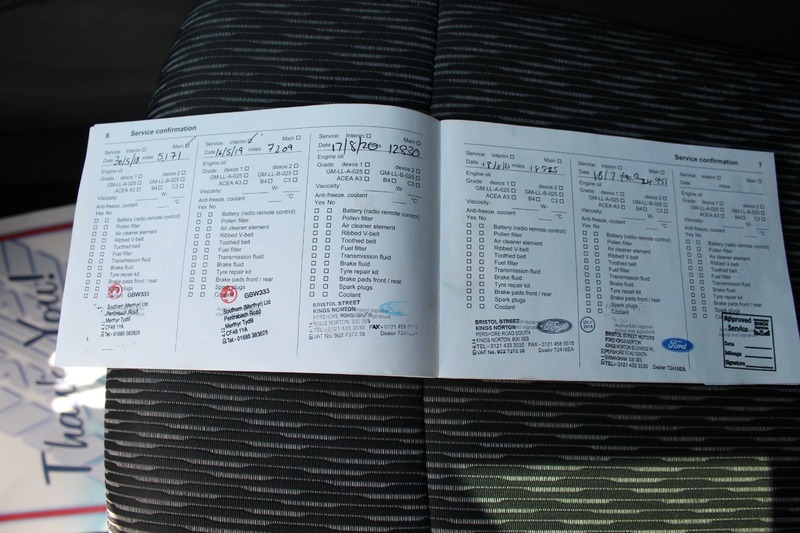 6
Service confirmation
Service: Interim Main
Date 30/5/18 miles 5,171
Engine oil
Grade: dexos 1 dexos 2
GM-LL-A-025 GM-LL-B-025
ACEA A3 B4 C3
Viscosity: W-
Anti-freeze, coolant °C
Yes No
Battery (radio remote control)
Pollen filter
Air cleaner element
Ribbed V-belt
Toothed belt
Fuel filter
Transmission fluid
Brake fluid
Tyre repair kit
Brake pads front / rear
Spark plugs
GBW333
Southern (Merthyr) Ltd
Pentrebach Road
Merthyr Tydfil
CF48 1YA
Tel:- 01685 383829
Service: Interim Main
Date 16/5/19 miles 7209
Engine oil
Grade: dexos 1 dexos 2
GM-LL-A-025 GM-LL-B-025
ACEA A3 B4 C3
Viscosity: W-
Anti-freeze, coolant °C
Yes No
Battery (radio remote control)
Pollen filter
Air cleaner element
Ribbed V-belt
Toothed belt
Fuel filter
Transmission fluid
Brake fluid
Tyre repair kit
Brake pads front / rear
Spark plugs
GBW333
Southern (Merthyr) Ltd
Pentrebach Road
Merthyr Tydfil
CF48 1YA
Tel:- 01685 383829
Service: Interim Main
Date 17/8/20 12830
Engine oil
Grade: dexos 1 dexos 2
GM-LL-A-025 GM-LL-B-025
ACEA A3 B4 C3
Viscosity: W-
Anti-freeze, coolant °C
Yes No
Battery (radio remote control)
Pollen filter
Air cleaner element
Ribbed V-belt
Toothed belt
Fuel filter
Transmission fluid
Brake fluid
Tyre repair kit
Brake pads front / rear
Spark plugs
Coolant
BRISTOL STREET
KINGS NORTON
PERSHORE ROAD SOUTH
KINGS NORTON B30 3EE
TEL - 0121 433 3030 FAX - 0121 458 5015
VAT No. 902 7372 38 Dealer 72418EA
Service confirmation
7
Service: Interim Main
Date miles
Engine oil
Grade: dexos 1 dexos 2
GM-LL-A-025 GM-LL-B-025
ACEA A3 B4 C3
Viscosity: W-
Anti-freeze, coolant °C
Yes No
Battery (radio remote control)
Pollen filter
Air cleaner element
Ribbed V-belt
Toothed belt
Fuel filter
Transmission fluid
Brake fluid
Tyre repair kit
Brake pads front / rear
Spark plugs
Coolant
BRISTOL STREET
KINGS NORTON
PERSHORE ROAD SOUTH
KINGS NORTON B30 3EE
TEL - 0121 433 3030 FAX - 0121 458 5015
VAT No. 902 7372 38 Dealer 72418EA
Ford
Service: Interim Main
Date
Engine oil
Grade: dexos 1 dexos 2
GM-LL-A-025 GM-LL-B-025
ACEA A3 B4 C3
Viscosity: W-
Anti-freeze, coolant °C
Yes No
Battery (radio remote control)
Pollen filter
Air cleaner element
Ribbed V-belt
Toothed belt
Fuel filter
Transmission fluid
Brake fluid
Tyre repair kit
Brake pads front / rear
Spark plugs
Coolant
BRISTOL STREET MOTORS
FORD KINGS NORTON
KINGS NORTON BUSINESS
PERSHORE ROAD SOUTH
BIRMINGHAM B30 3EE
TEL - 0121 433 3030 Dealer 72418EA
Ford
Service: Interim Main
Date miles
Engine oil
Grade: dexos 1 dexos 2
GM-LL-A-025 GM-LL-B-025
ACEA A3 B4 C3
Viscosity: W-
Anti-freeze, coolant °C
Yes No
Battery (radio remote control)
Pollen filter
Air cleaner element
Ribbed V-belt
Toothed belt
Fuel filter
Transmission fluid
Brake fluid
Tyre repair kit
Brake pads front / rear
Spark plugs
Approved
Service
Date
Mileage
Signature
Thank You!